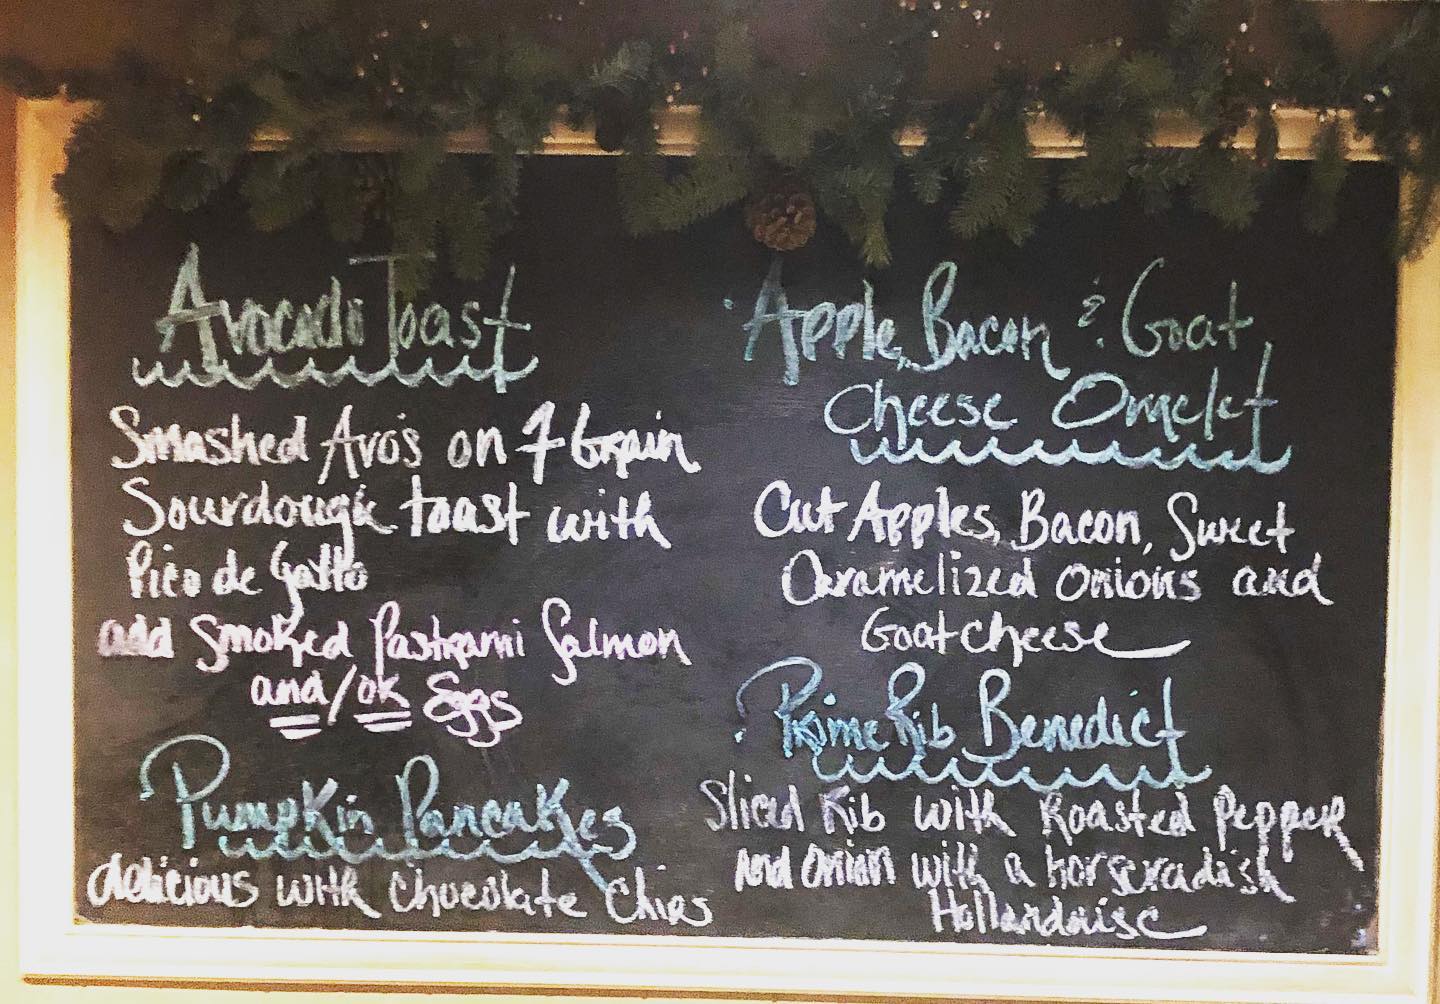 Avocado Toast
Smashed Avo's on 7 Grain
Sourdough toast with
Pico de Gallo
add Smoked Pastrami Salmon
and/or Eggs
Pumpkin Pancakes
delicious with chocolate chips
Apple, Bacon & Goat
Cheese Omelet
Cut Apples, Bacon, Sweet
Caramelized onions and
Goat cheese
Prime Rib Benedict
Sliced Rib with Roasted Pepper
and onion with a horseradish
Hollandaise